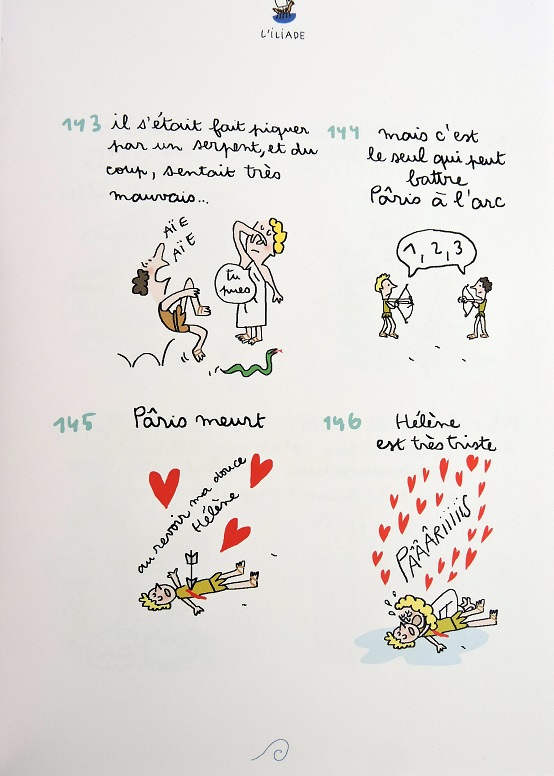 L'ILIADE
143 il s'était fait piquer
par un serpent, et du
coup, sentait très
mauvais...
AÏE
AÏE
tu
pues
144 mais c'est
le seul qui peut
battre
Pâris à l'arc
1, 2, 3
145 Pâris meurt
au revoir ma douce
Hélène
146 Hélène
est très triste
PÂÂÂRiiiiiS